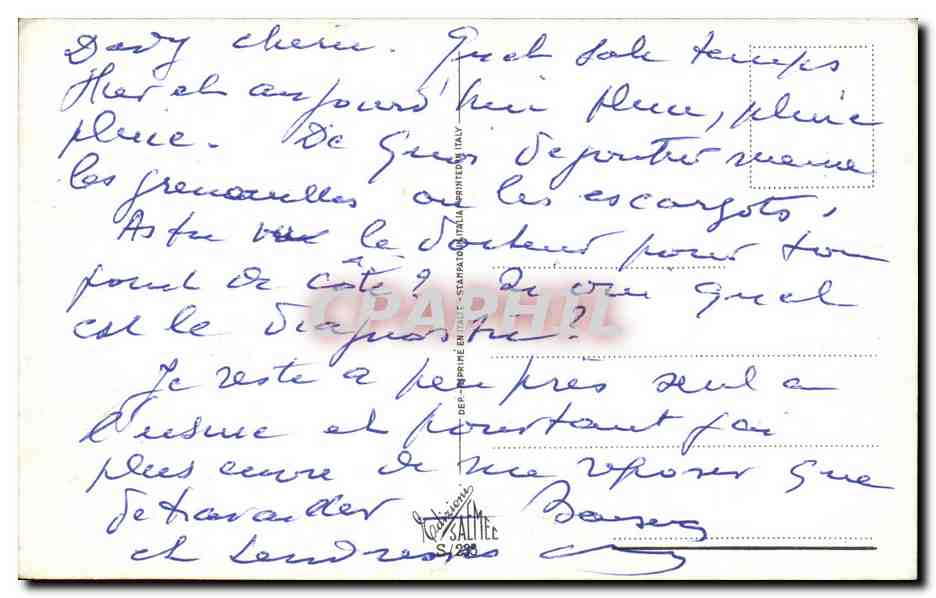 Dady cherie. Quel sale temps
Hier et aujourd'hui pluie, pluie
pluie. De quoi degouter meme
les grenouilles ou les escargots.
As tu vu le docteur pour ton
point de côté? Si oui quel
est le diagnostic?
Je reste a peu près seul a
l'usine et pourtant j'ai
plus envie de me reposer que
de travailler Baisers
et tendresses
DEP. - IMPRIMÉ EN ITALIE - STAMPATO IN ITALIA - PRINTED IN ITALY
CPAPHIL
Edizioni
SAEMEC
S/228